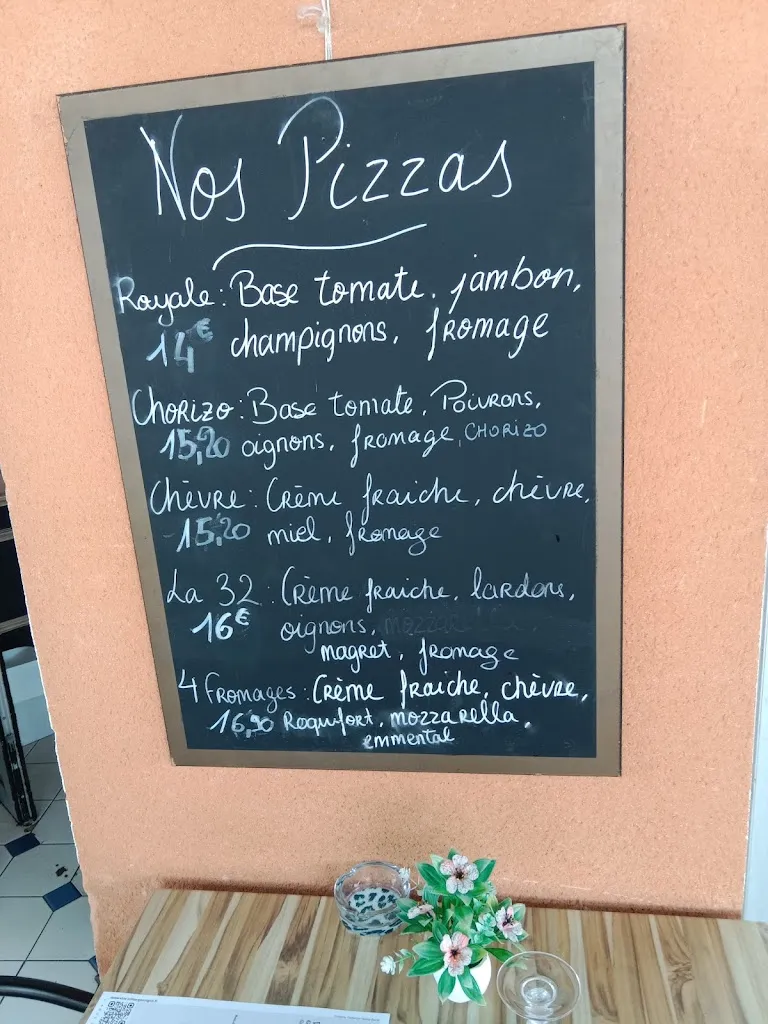 Nos Pizzas
Royale: Base tomate, jambon,
14€ champignons, fromage
Chorizo: Base tomate, Poivrons,
15,20 oignons, fromage, CHORIZO
Chèvre: Crème fraiche, chèvre,
15,20 miel, fromage
La 32: Crème fraiche, lardons,
16€ oignons,
magret, fromage
4 Fromages: Crème fraiche, chèvre,
16,90 Roquefort, mozzarella,
emmental